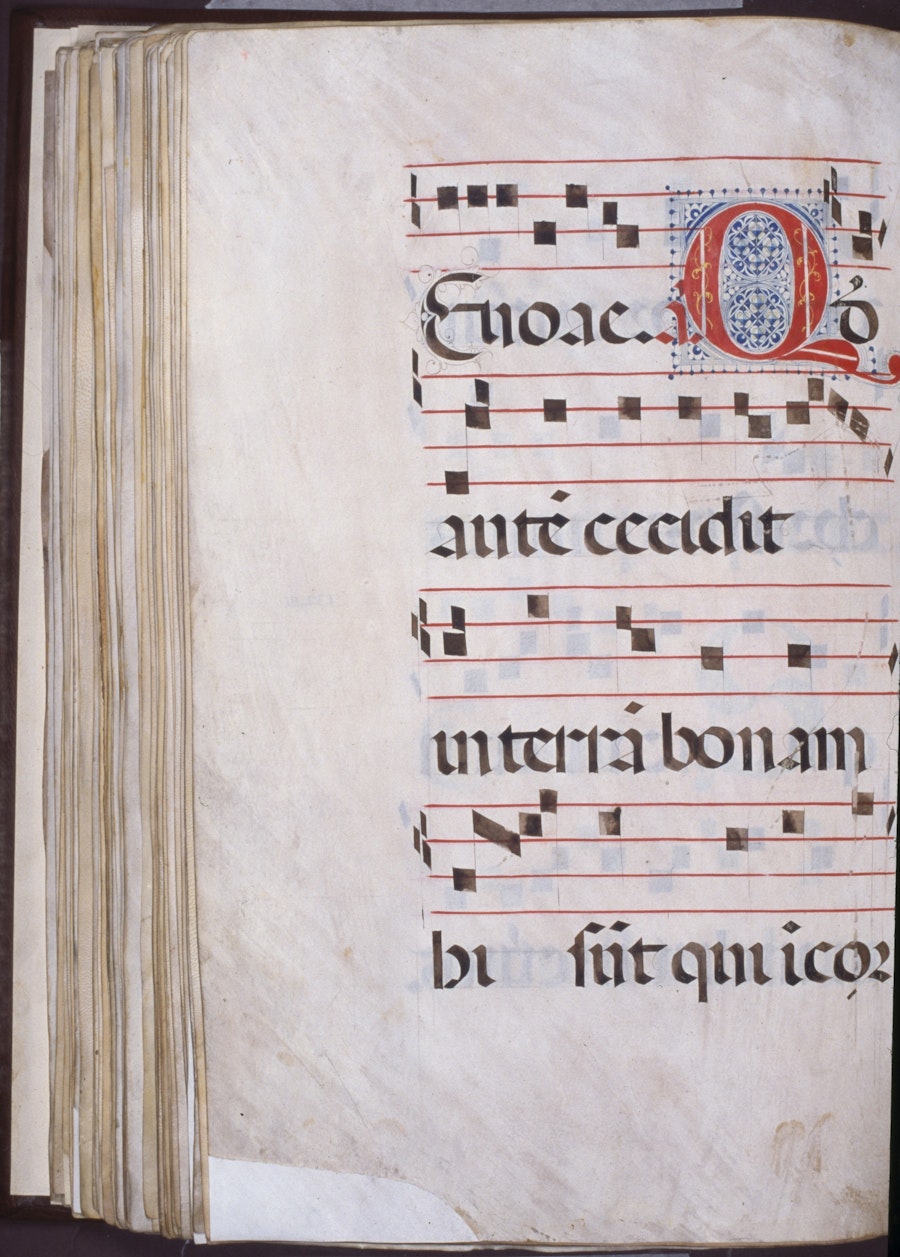 Euouae. a. Qđ
ante͛ cecidit
in terrā bonam
hi sūt qui i cor